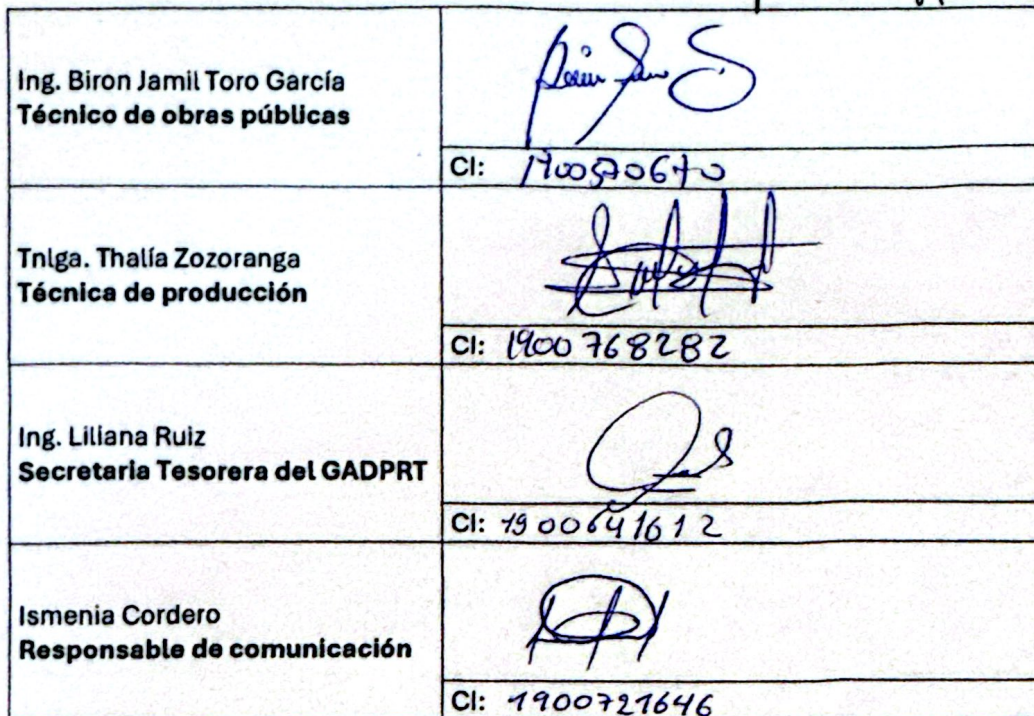 Ing. Biron Jamil Toro García
Técnico de obras públicas
CI: 1900570670
Tnlga. Thalía Zozoranga
Técnica de producción
CI: 1900768282
Ing. Liliana Ruiz
Secretaria Tesorera del GADPRT
CI: 1900641612
Ismenia Cordero
Responsable de comunicación
CI: 1900721646